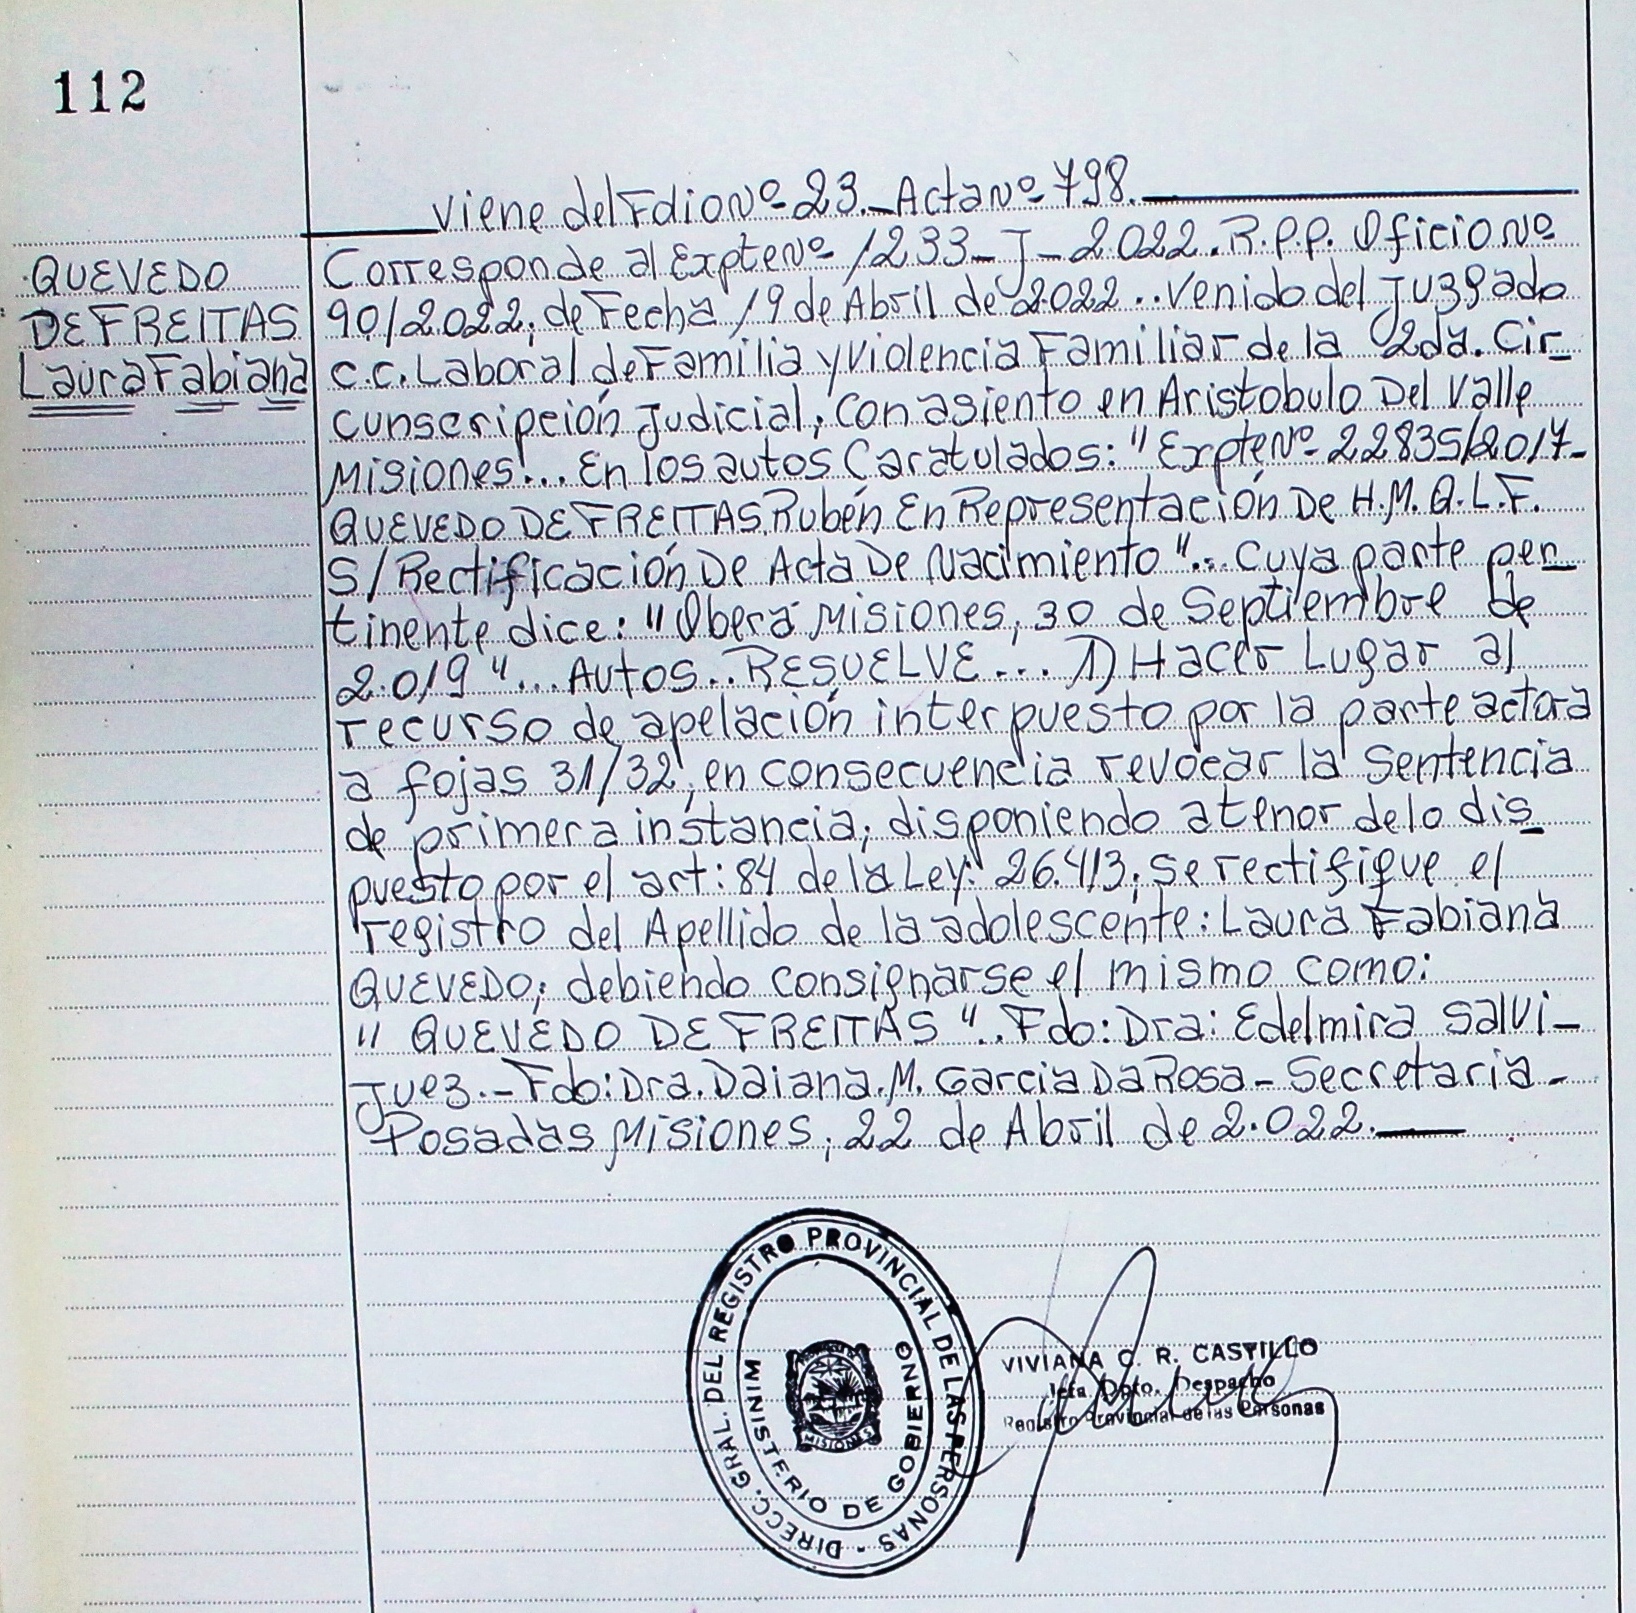 112
viene del Folio Nº 23. Acta Nº 798.
QUEVEDO
DE FREITAS
Laura Fabiana
Corresponde al Expte Nº 1233-J-2022. R.P.P. Oficio Nº
90/2022, de Fecha 19 de Abril de 2022.. Venido del Juzgado
C.C. Laboral de Familia y Violencia Familiar de la 2da. Cir_
cunscripción Judicial, con asiento en Aristobulo Del Valle
Misiones!.. En los autos Caratulados: "Expte Nº 22835/2017-
QUEVEDO DE FREITAS Rubén En Representación De H.M.Q.L.F.
S/Rectificación De Acta De Nacimiento"... Cuya parte per_
tinente dice: "Oberá Misiones, 30 de Septiembre de
2.019"... Autos.. RESUELVE... 1) Hacer Lugar al
recurso de apelación interpuesto por la parte actora
a fojas 31/32, en consecuencia revocar la Sentencia
de primera instancia, disponiendo a tenor de lo dis_
puesto por el art: 84 de la Ley: 26.413, se rectifique el
registro del Apellido de la adolescente: Laura Fabiana
QUEVEDO; debiendo consignarse el mismo como:
" QUEVEDO DE FREITAS ".. Fdo: Dra: Edelmira Salvi-
Juez.- Fdo: Dra. Daiana. M. Garcia Da Rosa - Secretaria.-
Posadas Misiones, 22 de Abril de 2.022.
DIRECC. GRAL. DEL REGISTRO PROVINCIAL DE LAS PERSONAS -
MINISTERIO DE GOBIERNO
MISIONES
VIVIANA C. R. CASTILLO
Jefa Dpto. Despacho
Registro Provincial de las Personas